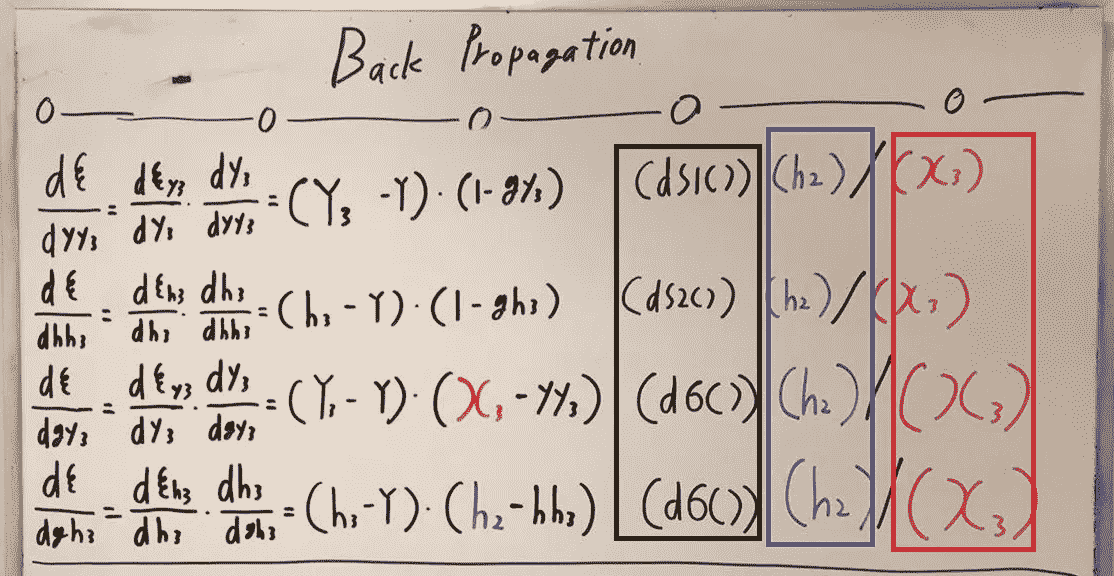 Back Propagation
dξ/dyy₃ = dξy₃/dY₃ · dY₃/dyy₃ = (Y₃ - Y) · (1 - gy₃) (dS1()) (h₂) / (X₃)
dξ/dhh₃ = dξh₃/dh₃ · dh₃/dhh₃ = (h₃ - Y) · (1 - gh₃) (dS2()) (h₂) / (X₃)
dξ/dgy₃ = dξy₃/dY₃ · dY₃/dgy₃ = (Y₃ - Y) · (X₃ - yy₃) (d6()) (h₂) / (X₃)
dξ/dgh₃ = dξh₃/dh₃ · dh₃/dgh₃ = (h₃ - Y) · (h₂ - hh₃) (d6()) (h₂) / (X₃)